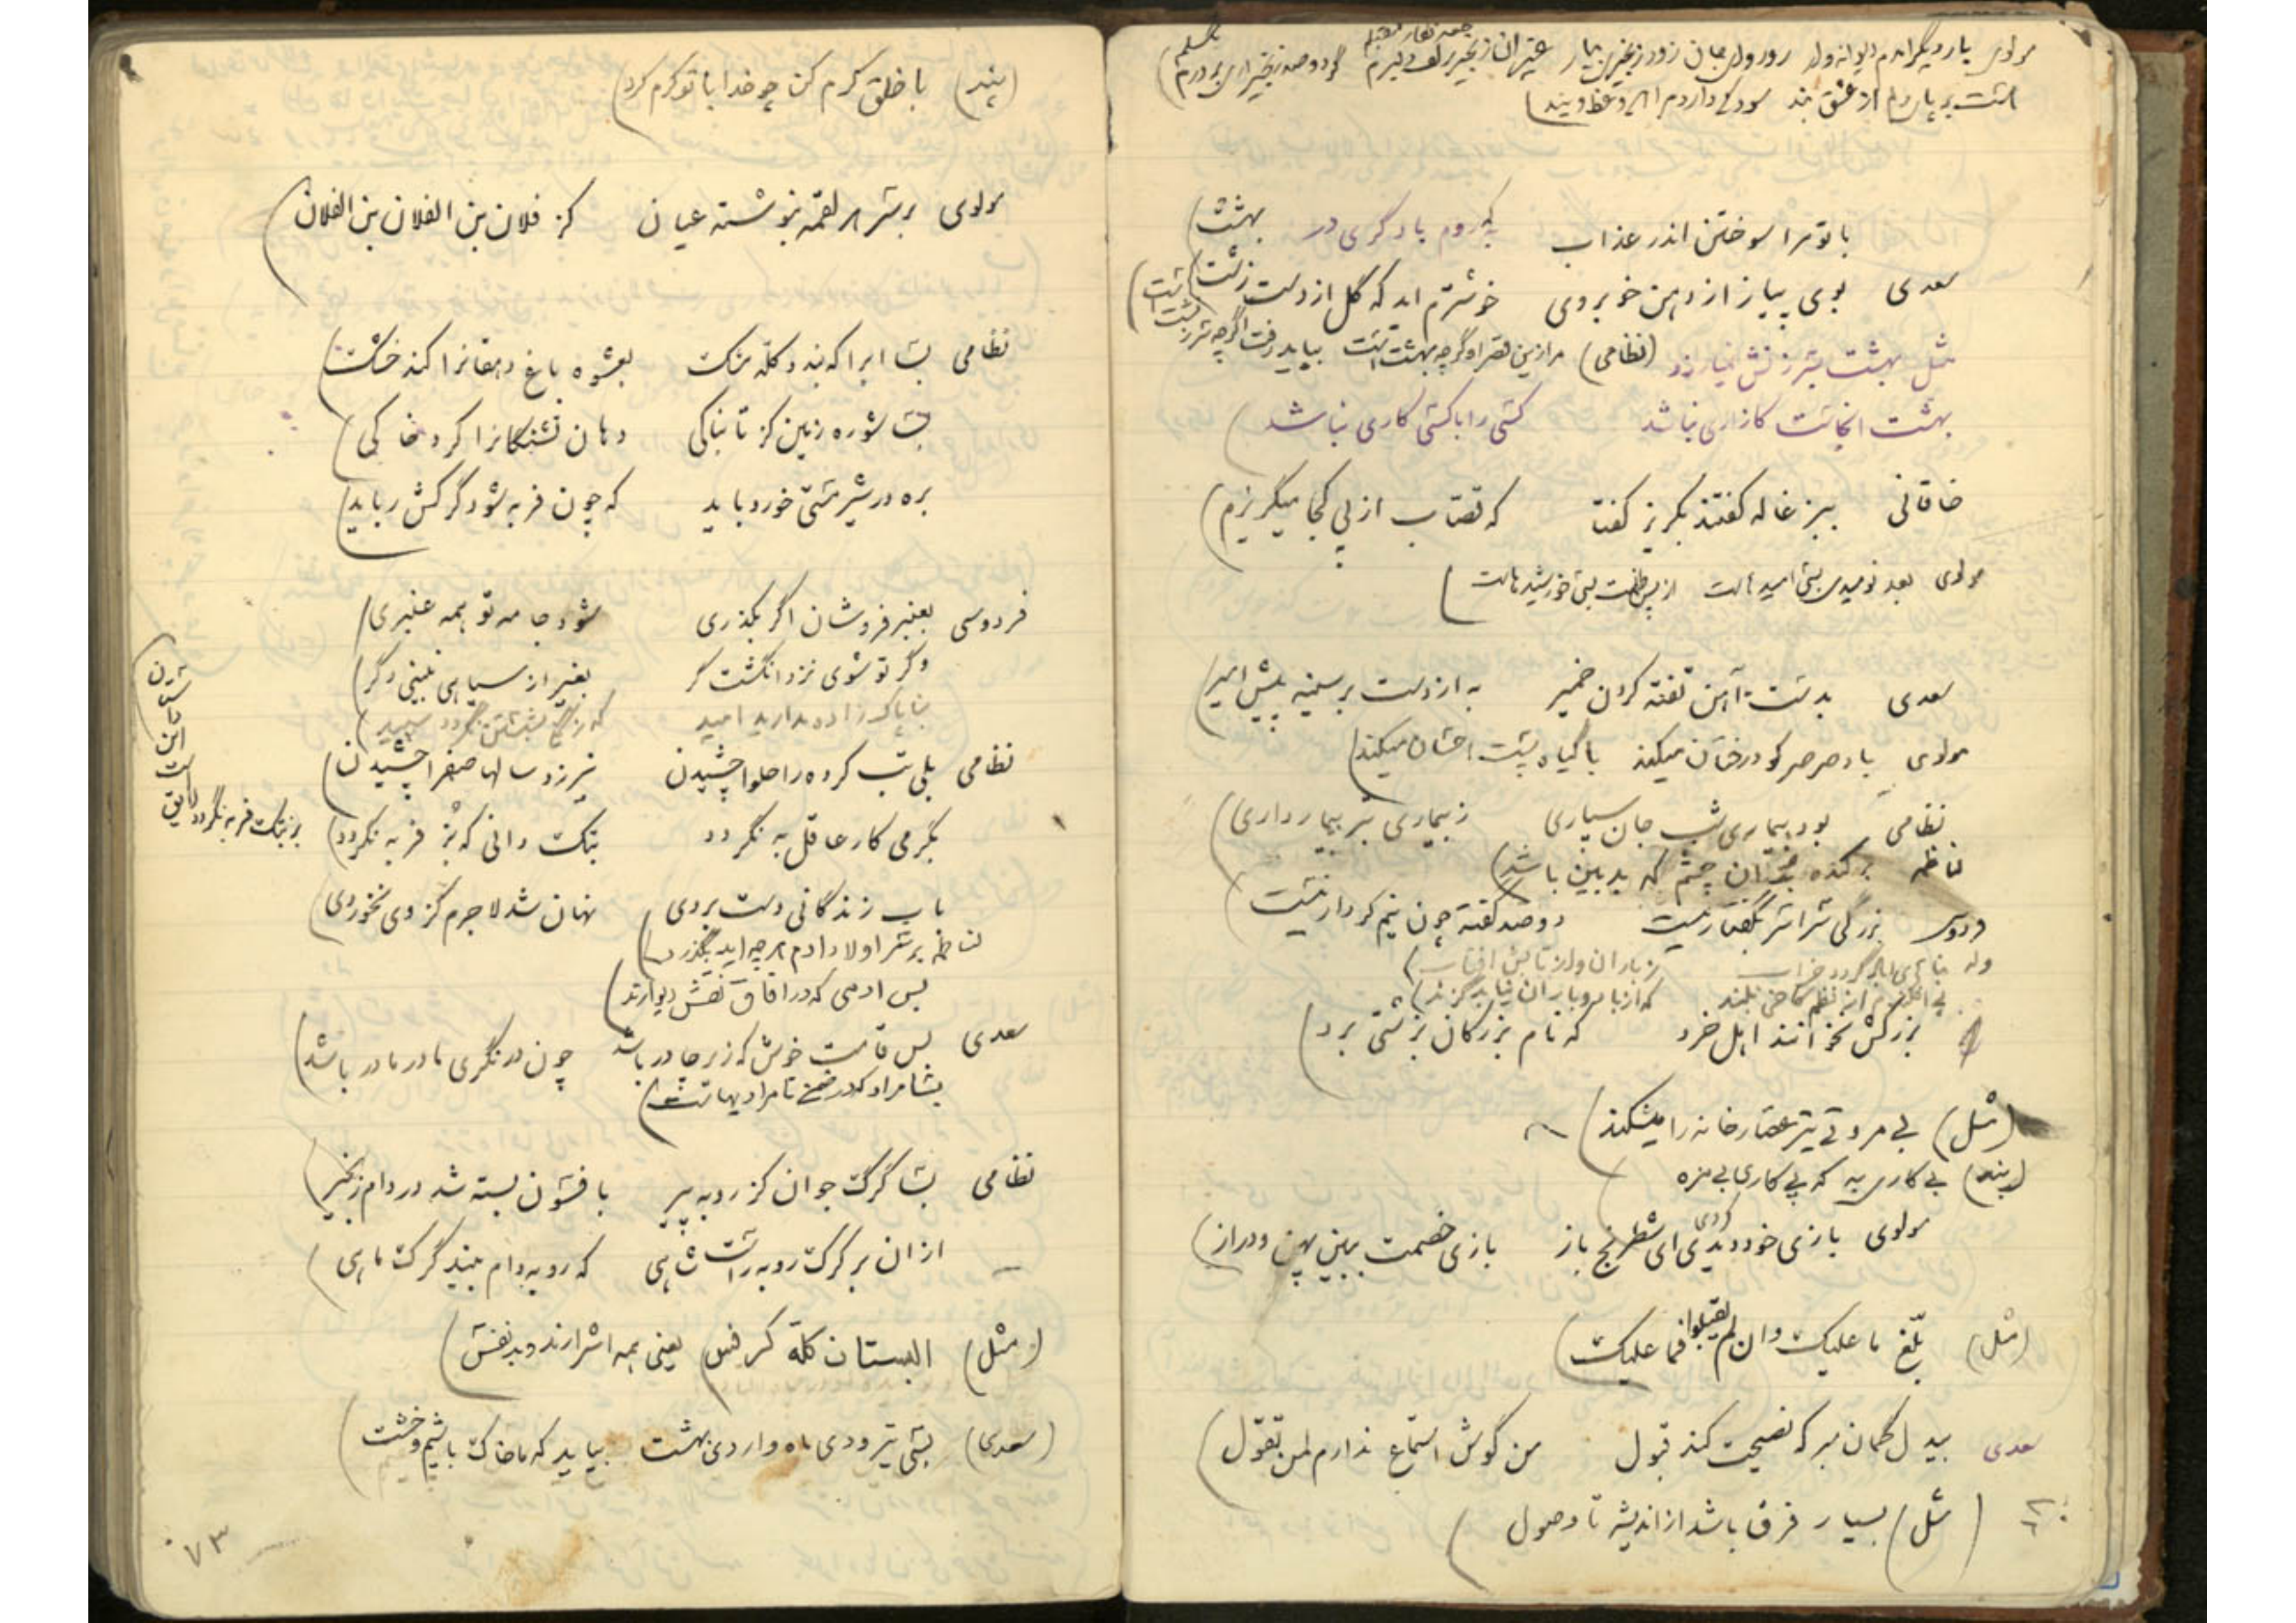 مولوی بار دیگر آمدم دیوانه وار رو رو ای جان زود زنجیری بیار غیر آن زنجیر زلف دلبرم گر دو صد زنجیر آری بردرم
هست بر پای دلم از عشق بند سود کی دارد مرا این وعظ و پند
با تو مرا سوختن اندر عذاب به که روم با دگری در بهشت
سعدی بوی پیاز از دهن خوبروی خوشترم آید که گل از دست زشت
مثل بهشت بسرزنش نمیارزد (نظامی) مرا زین قصر اگرچه بهشت است بباید رفت اگرچه سرزنشت است
بهشت آنجاست کازاری نباشد کسی را با کسی کاری نباشد
خاقانی ببزغاله گفتند بگریز گفت که قصاب از پی کجا میگریزم
مولوی بعد نومیدی بسی امیدهاست از پس ظلمت بسی خورشیدهاست
سعدی بدست آهن تفته کردن خمیر به از دست بر سینه پیش امیر
مولوی باد صرصر کو درختان میکند با گیاه پست احسان میکند
نظامی بود بیماری شب جان سپاری ز بیماری بتر بیمار داری
لناظمه برکنده به آن چشم که بدبین باشد
فردوسی بزرگی سراسر بگفتار نیست دو صد گفته چون نیم کردار نیست
وله بناهای آباد گردد خراب ز باران و از تابش آفتاب
پی افکندم از نظم کاخی بلند که از باد و باران نیابد گزند
بزرگش نخوانند اهل خرد که نام بزرگان بزشتی برد
(مثل) بی مروتی تیر عصارخانه را میشکند
(پند) بی کاری به که پی کاری بی مزه
مولوی بازی خود دیدی ای شطرنج باز بازی خصمت ببین پهن و دراز
کردی
(مثل) بلّغ ما علیک وان لم یقبلوا فما علیک
سعدی بیدل گمان مبر که نصیحت کند قبول من گوش استماع ندارم لمن تقول
(مثل) بسیار فرق باشد از اندیشه تا وصول
(پند) با خلق کرم کن چو خدا با تو کرم کرد
مولوی بر سر هر لقمه بنوشته عیان کز فلان بن الفلان بن الفلان
نظامی بسا ابرا که بندد کله مشک بعشوه باغ دهقانرا کند خشک
بسا شوره زمین کز تابناکی دهان تشنگانرا کرد خاکی
بره در شیر مستی خورد باید که چون فربه شود گرگش رباید
فردوسی بعنبر فروشان اگر بگذری شود جامه تو همه عنبری
وگر تو شوی نزد انگشت گر بغیر از سیاهی نبینی دگر
بناپاک زاده مدارید امید که زنگی بشستن نگردد سپید
نظامی بلی تب کرده را حلوا چشیدن نیرزد سالها صفرا چشیدن
بگرمی کار عاقل به نگردد بتک دانی که بُز فربه نگردد
بز بتک فربه نگردد
بآب زندگانی دست بردی نهان شد لاجرم کز وی نخوردی
لناظمه بر سر اولاد آدم هرچه آید بگذرد
بس آدمی که در آفاق نقش دیوارند
سعدی بس قامت خوش که زیر چادر باشد چون در نگری مادر مادر باشد
بسا مراد که در ضمن نامرادیهاست
نظامی بسا گرگ جوان کز روبه پیر بافسون بسته شد در دام زنجیر
از آن بر گرگ روبه راست شاهی که روبه دام بیند گرگ ماهی
(مثل) البستان کله کرفس یعنی همه اشرارند و بدنفس
(سعدی) بسی تیر و دی ماه و اردی بهشت بیاید که ما خاک باشیم و خشت
۷۳